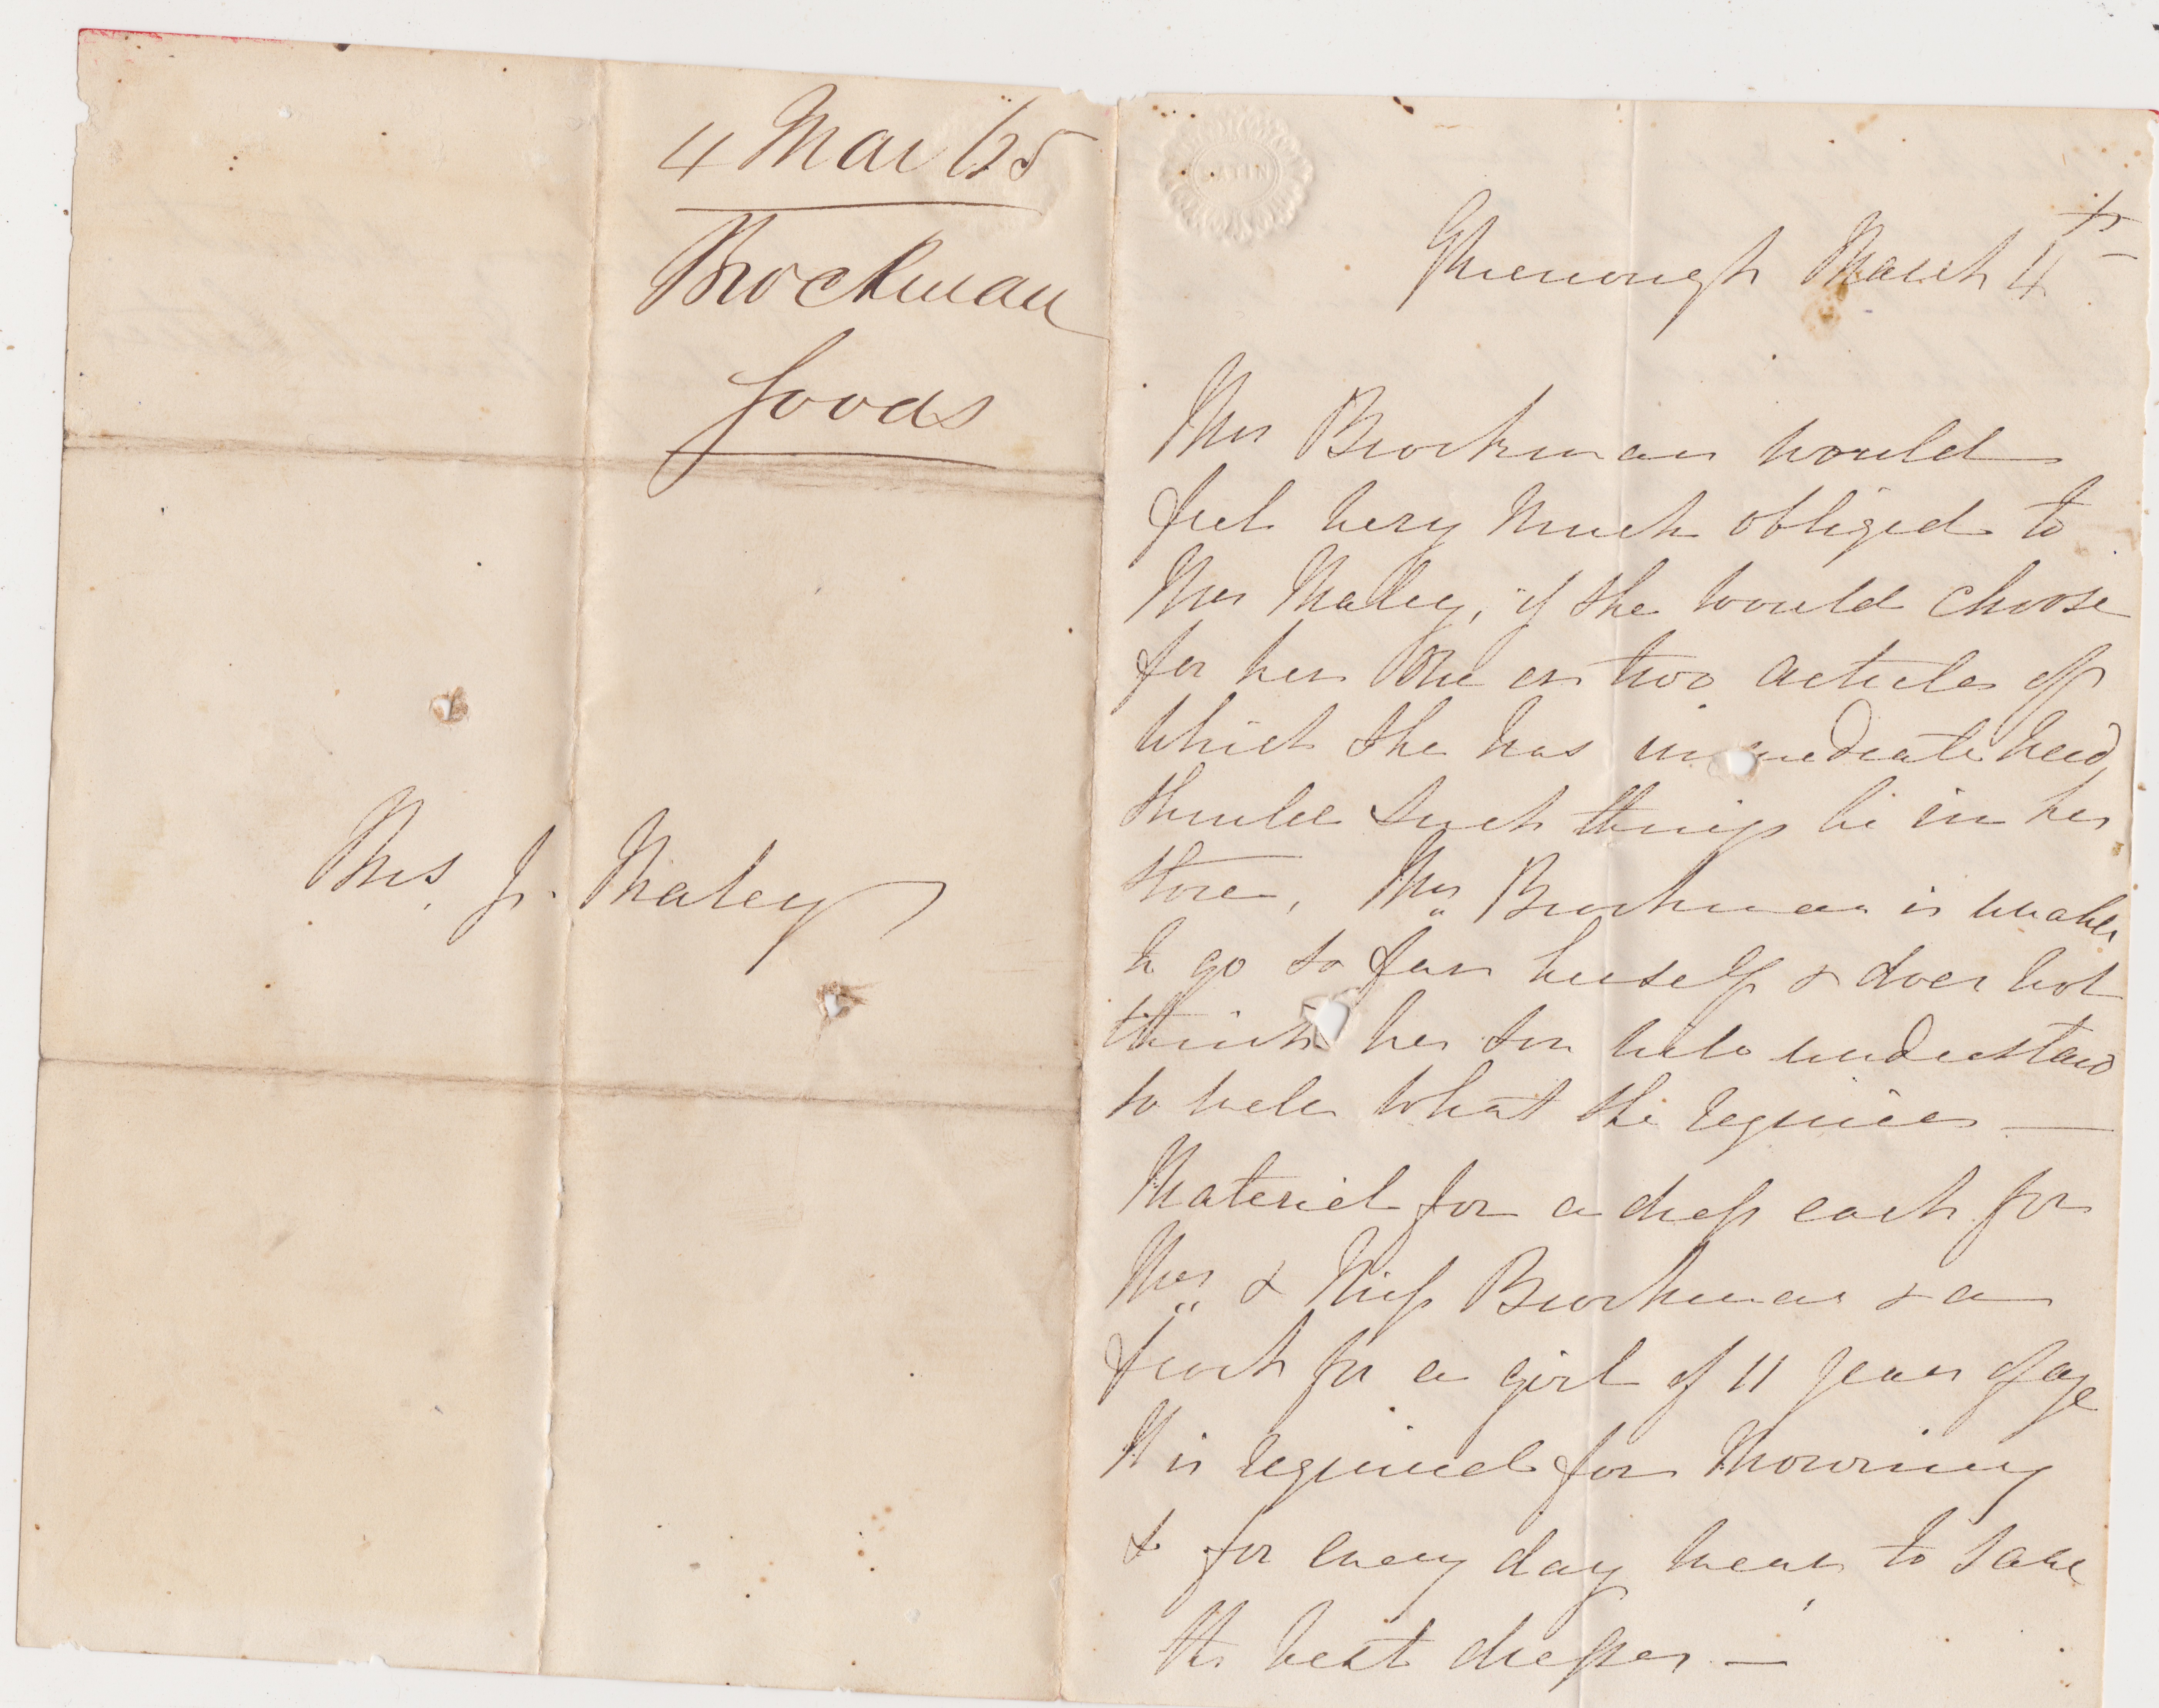 4 Mar 65
Brockman
Goods
Mrs. J. Maley
SATIN
Greenough March 4th
Mrs Brockman would
feel very much obliged to
Mrs Maley, if she would choose
for her One or two articles of
which she has immediate need
should such things be in her
store, Mrs Brockman is unable
to go so far herself & does not
think her son will understand
so well what she requires —
Material for a dress each for
Mrs & Miss Brockman & a
frock for a girl of 11 years of age
It is required for Mourning
& for every day wear, to save
the best dresses —